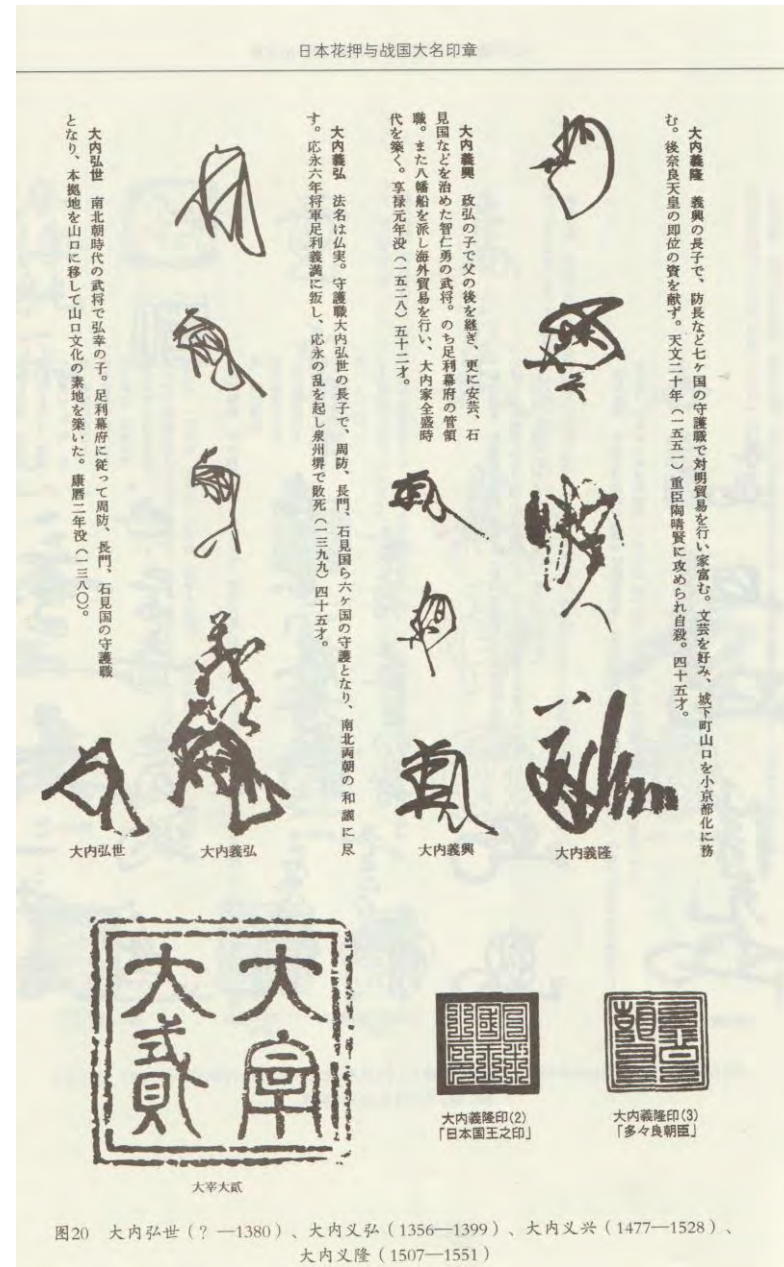 日本花押与战国大名印章
大内義隆　義興の長子で、防長など七ケ国の守護職で対明貿易を行い家富む。文芸を好み、城下町山口を小京都化に務
む。後奈良天皇の即位の資を献ず。天文二十年（一五五一）重臣陶晴賢に攻められ自殺。四十五才。
大内義興　政弘の子で父の後を継ぎ、更に安芸、石
見国などを治めた智仁勇の武将。のち足利幕府の管領
職。また八幡船を派し海外貿易を行い、大内家全盛時
代を築く。享禄元年没（一五二八）五十二才。
大内義弘　法名は仏実。守護職大内弘世の長子で、周防、長門、石見国ら六ケ国の守護となり、南北両朝の和議に尽
す。応永六年将軍足利義満に叛し、応永の乱を起し泉州堺で敗死（一三九九）四十五才。
大内弘世　南北朝時代の武将で弘幸の子。足利幕府に従って周防、長門、石見国の守護職
となり、本拠地を山口に移して山口文化の素地を築いた。康暦二年没（一三八〇）。
大内義隆
大内義興
大内義弘
大内弘世
大宰
大貳
大宰大貳
大内義隆印(2)
「日本国王之印」
大内義隆印(3)
「多々良朝臣」
图20　大内弘世（？—1380）、大内义弘（1356—1399）、大内义兴（1477—1528）、
大内义隆（1507—1551）